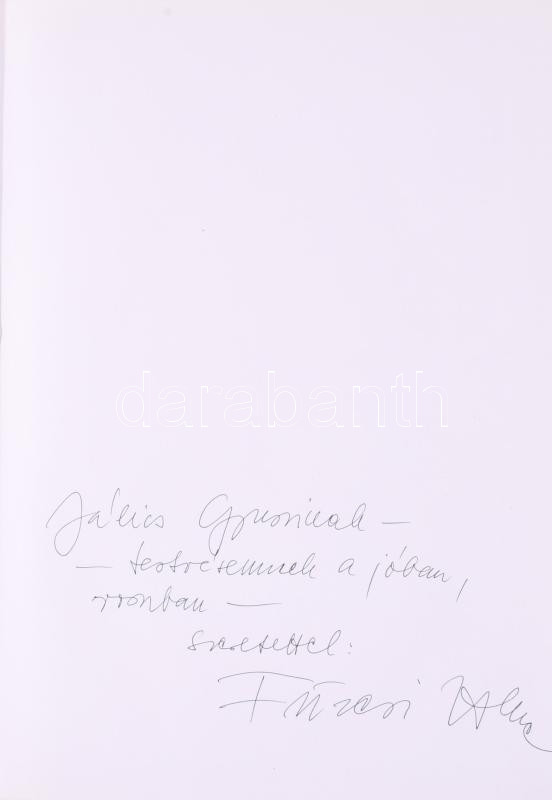 darabanth
Jálics Gyusinak —
— testvéremnek a jóban,
rosszban —
szeretettel:
Füzesi